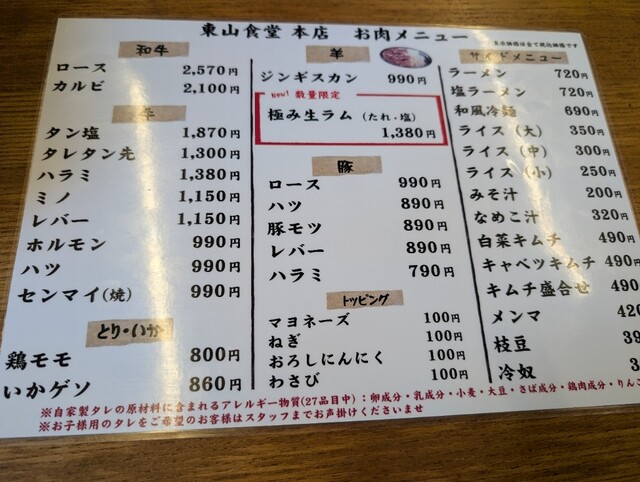 東山食堂 本店　お肉メニュー
表示価格は全て税込価格です
和牛
ロース 2,570円
カルビ 2,100円
牛
タン塩 1,870円
タレタン先 1,300円
ハラミ 1,380円
ミノ 1,150円
レバー 1,150円
ホルモン 990円
ハツ 990円
センマイ(焼) 990円
とり・いか
鶏モモ 800円
いかゲソ 860円
羊
ジンギスカン 990円
New! 数量限定
極み生ラム (たれ・塩)
1,380円
豚
ロース 990円
ハツ 890円
豚モツ 890円
レバー 890円
ハラミ 790円
トッピング
マヨネーズ 100円
ねぎ 100円
おろしにんにく 100円
わさび 100円
サイドメニュー
ラーメン 720円
塩ラーメン 720円
和風冷麺 690円
ライス (大) 350円
ライス (中) 300円
ライス (小) 250円
みそ汁 200円
なめこ汁 320円
白菜キムチ 490円
キャベツキムチ 490円
キムチ盛合せ 490
メンマ 420
枝豆 39
冷奴 3
※自家製タレの原材料に含まれるアレルギー物質(27品目中)：卵成分・乳成分・小麦・大豆・さば成分・鶏肉成分・りんご
※お子様用のタレをご希望のお客様はスタッフまでお声掛けくださいませ